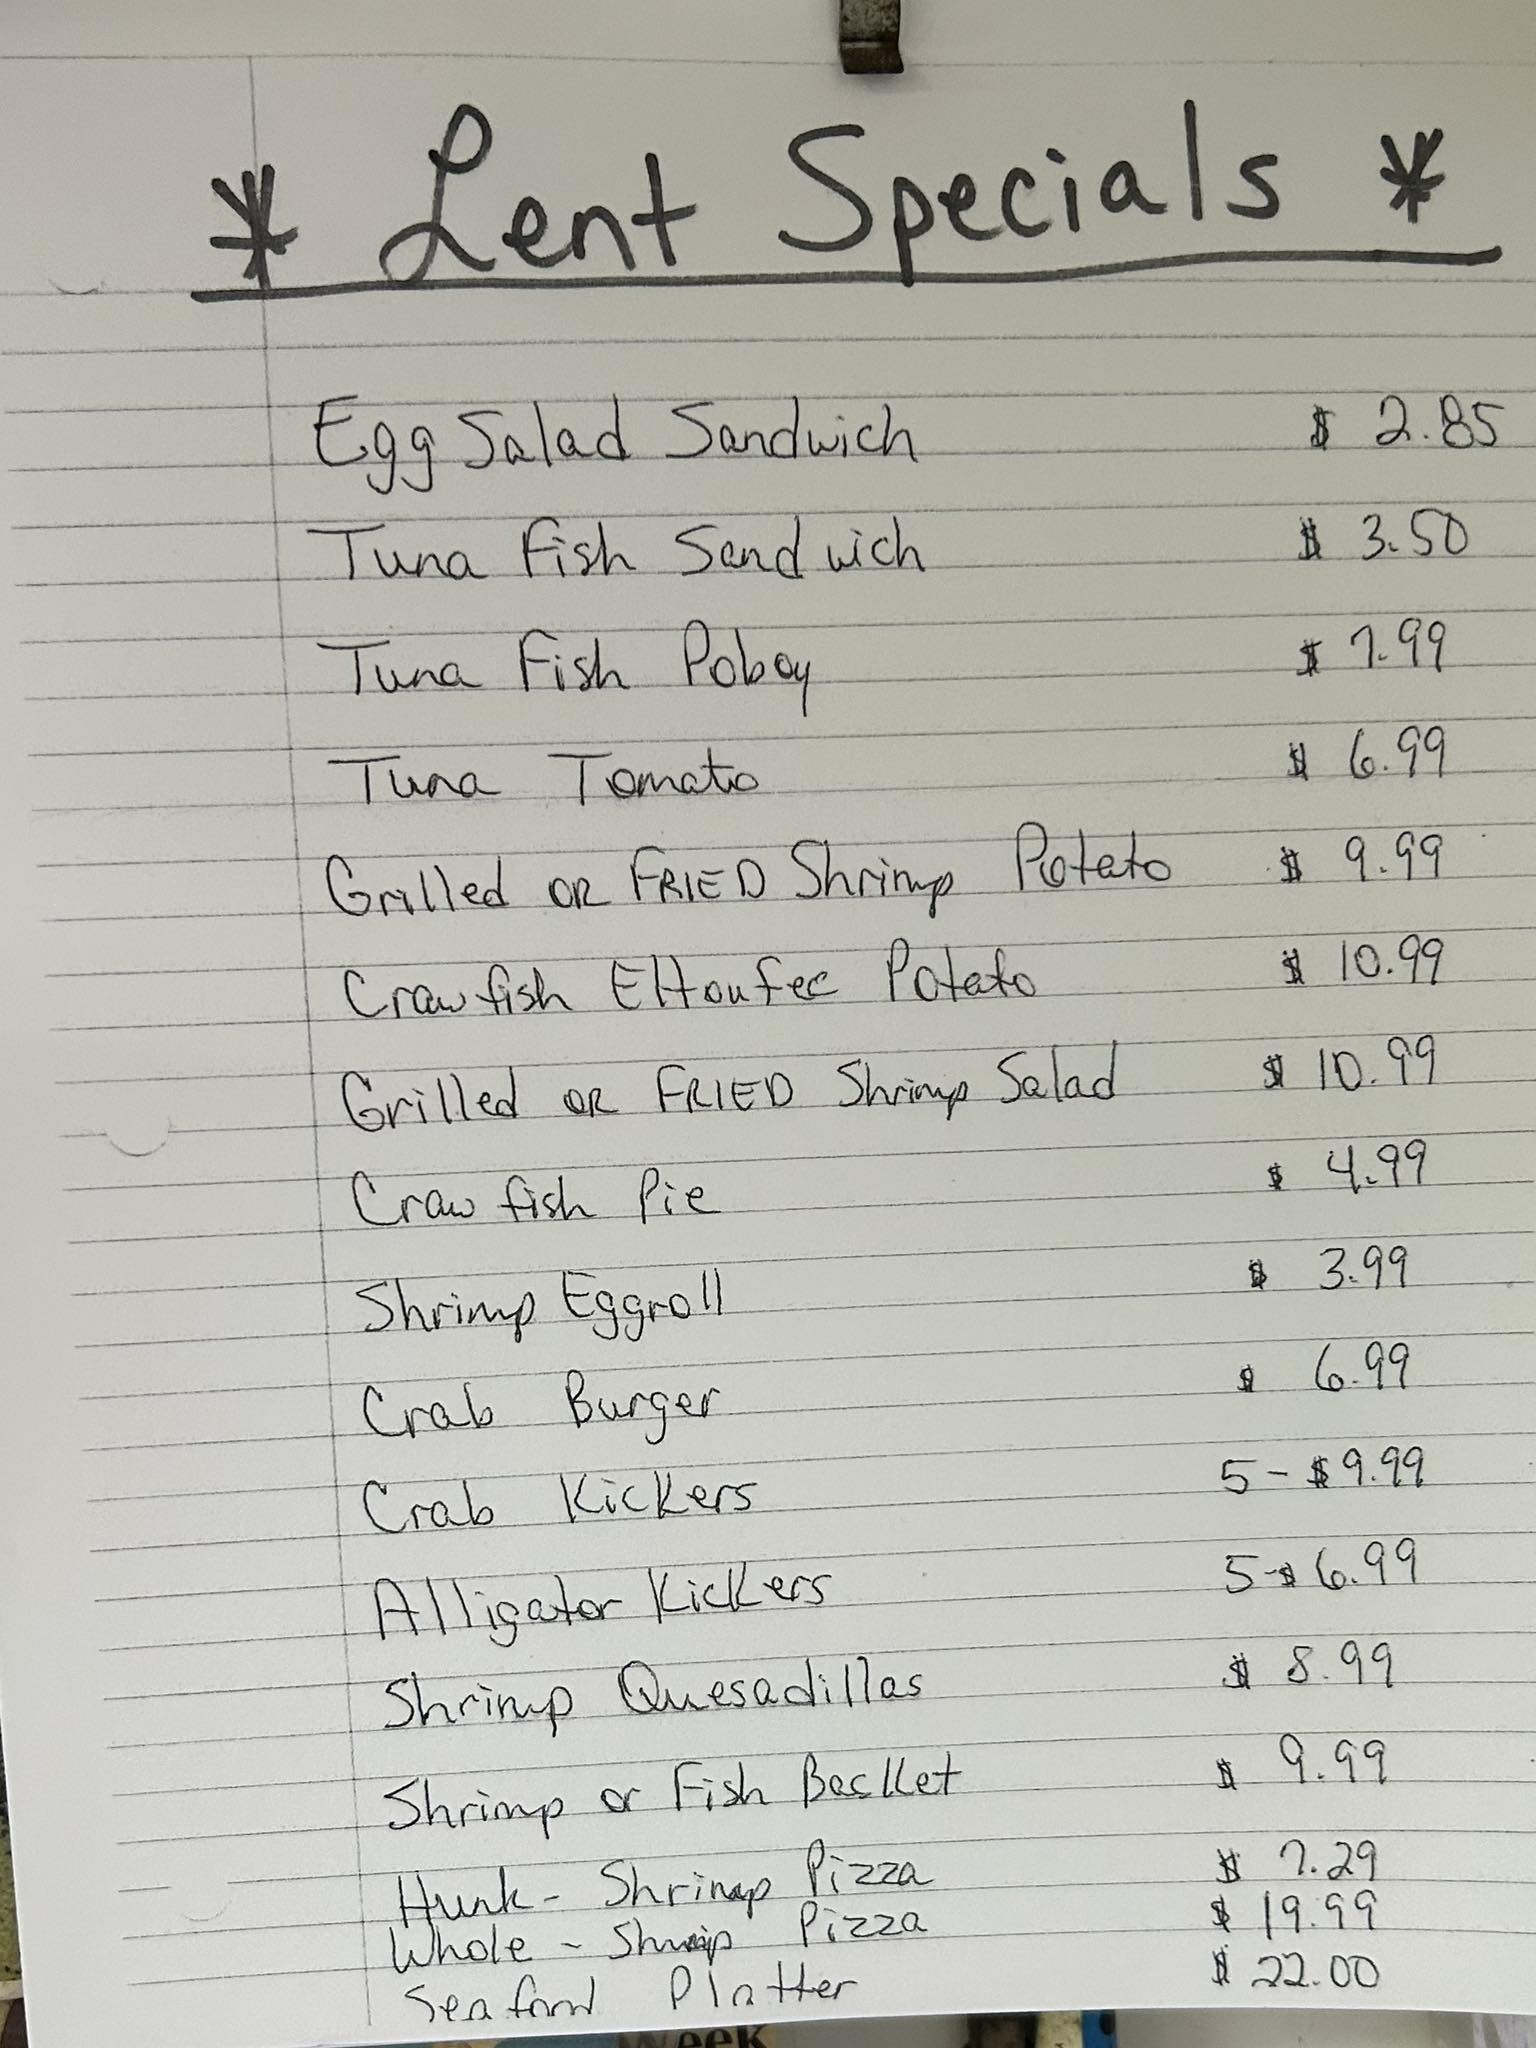 * Lent Specials *
Egg Salad Sandwich $ 2.85
Tuna Fish Sandwich $ 3.50
Tuna Fish Poboy $ 7.99
Tuna Tomato $ 6.99
Grilled OR FRIED Shrimp Potato $ 9.99
Crawfish Ettoufee Potato $ 10.99
Grilled OR FRIED Shrimp Salad $ 10.99
Crawfish Pie $ 4.99
Shrimp Eggroll $ 3.99
Crab Burger $ 6.99
Crab Kickers 5 - $ 9.99
Alligator Kickers 5 - $ 6.99
Shrimp Quesadillas $ 8.99
Shrimp or Fish Basket $ 9.99
Hunk - Shrimp Pizza $ 7.29
Whole - Shrimp Pizza $ 19.99
Seafood Platter $ 22.00
Week